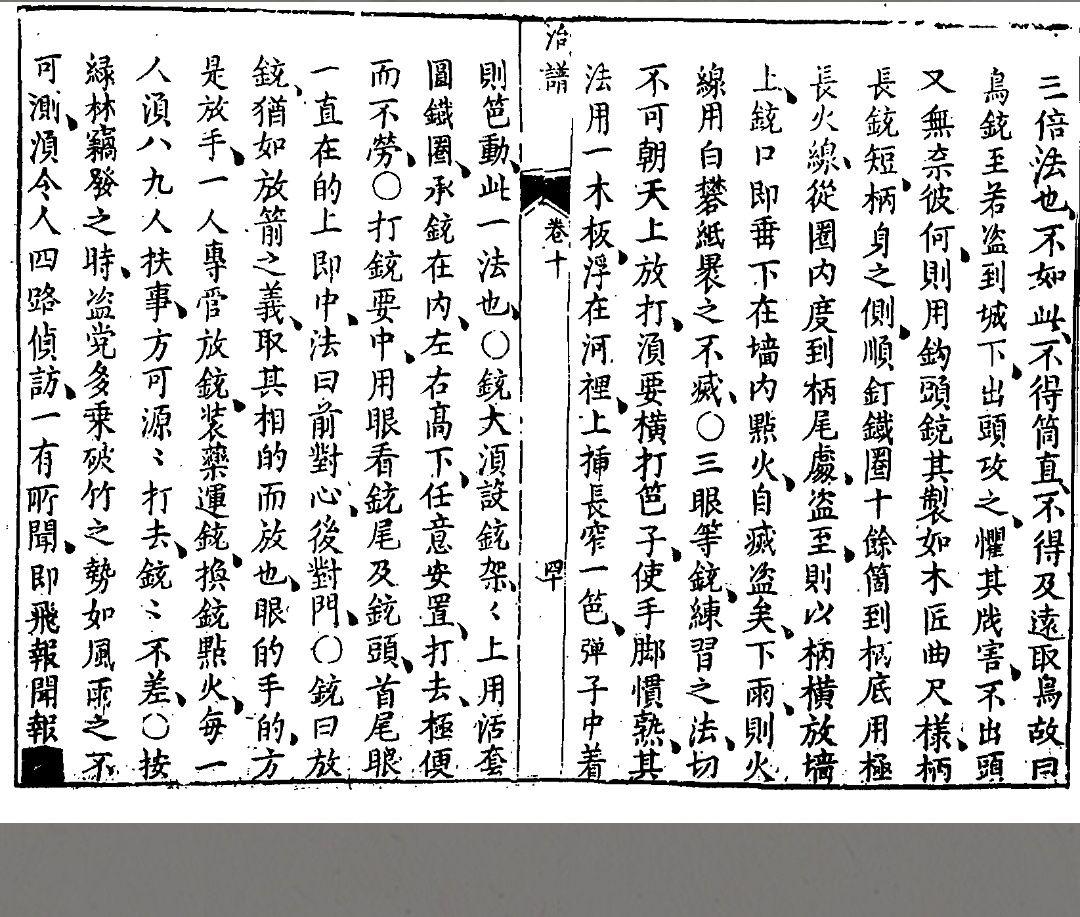 三倍法也不如此不得筒直不得及遠取鳥故曰
鳥銃至若盗到城下出頭攻之懼其戕害不出頭
又無柰彼何則用鈎頭銃其製如木匠曲尺様柄
長銃短柄身之側順釘鐵圏十餘箇到柄底用極
長火線從圏内度到柄尾處盗至則以柄横放墻
上銃口即垂下在墻内點火自㓕盗矣下雨則火
線用白礬紙裹之不㓕〇三眼等銃練習之法切
不可朝天上放打湏要横打笆子使手脚慣熟其
法用一木板浮在河裡上揷長窄一笆弹子中着
治譜
卷十
四十
則笆動此一法也〇銃大湏設銃架〻上用活套
圓鐵圏承銃在内左右高下任意安置打去極便
而不勞〇打銃要中用眼看銃尾及銃頭首尾眼
一直在的上即中法曰前對心後對門〇銃曰放
銃猶如放箭之義取其相的而放也眼的手的方
是放手一人專管放銃装藥運銃換銃點火每一
人湏八九人扶事方可源〻打去銃〻不差〇按
緑林竊發之時盗党多乗破竹之勢如風雨之不
可測湏令人四路偵訪一有所聞即飛報聞報